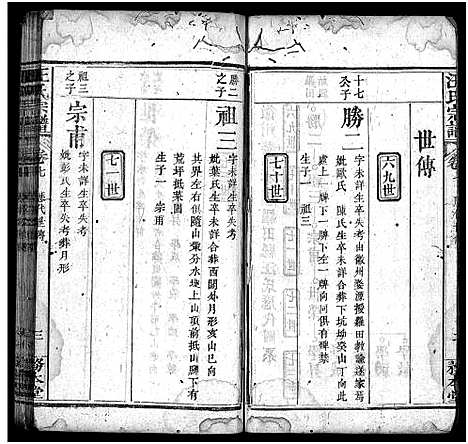 世傳
六九世
十七
公子
勝二
字未詳生卒失考由徽州婺源授羅田教諭遂家焉
妣歐氏 陳氏生卒未詳合葬下坑坳癸山丁向此
處上一牌下下左一牌向同俱有碑禁
生子一 祖三
七十世
勝二
之子
祖三
字未詳生卒失考
妣葉氏生卒未詳合葬西關外月形亥山巳向
其界左右俱隨山彙分水埂上山頂前抵山脚下有
荒坪抵菜園
生子一 宗甫
七一世
祖三
之子
宗甫
字未詳生卒失考
妣彭氏生卒失考葬月形
汪氏宗譜
卷七
三
務本堂